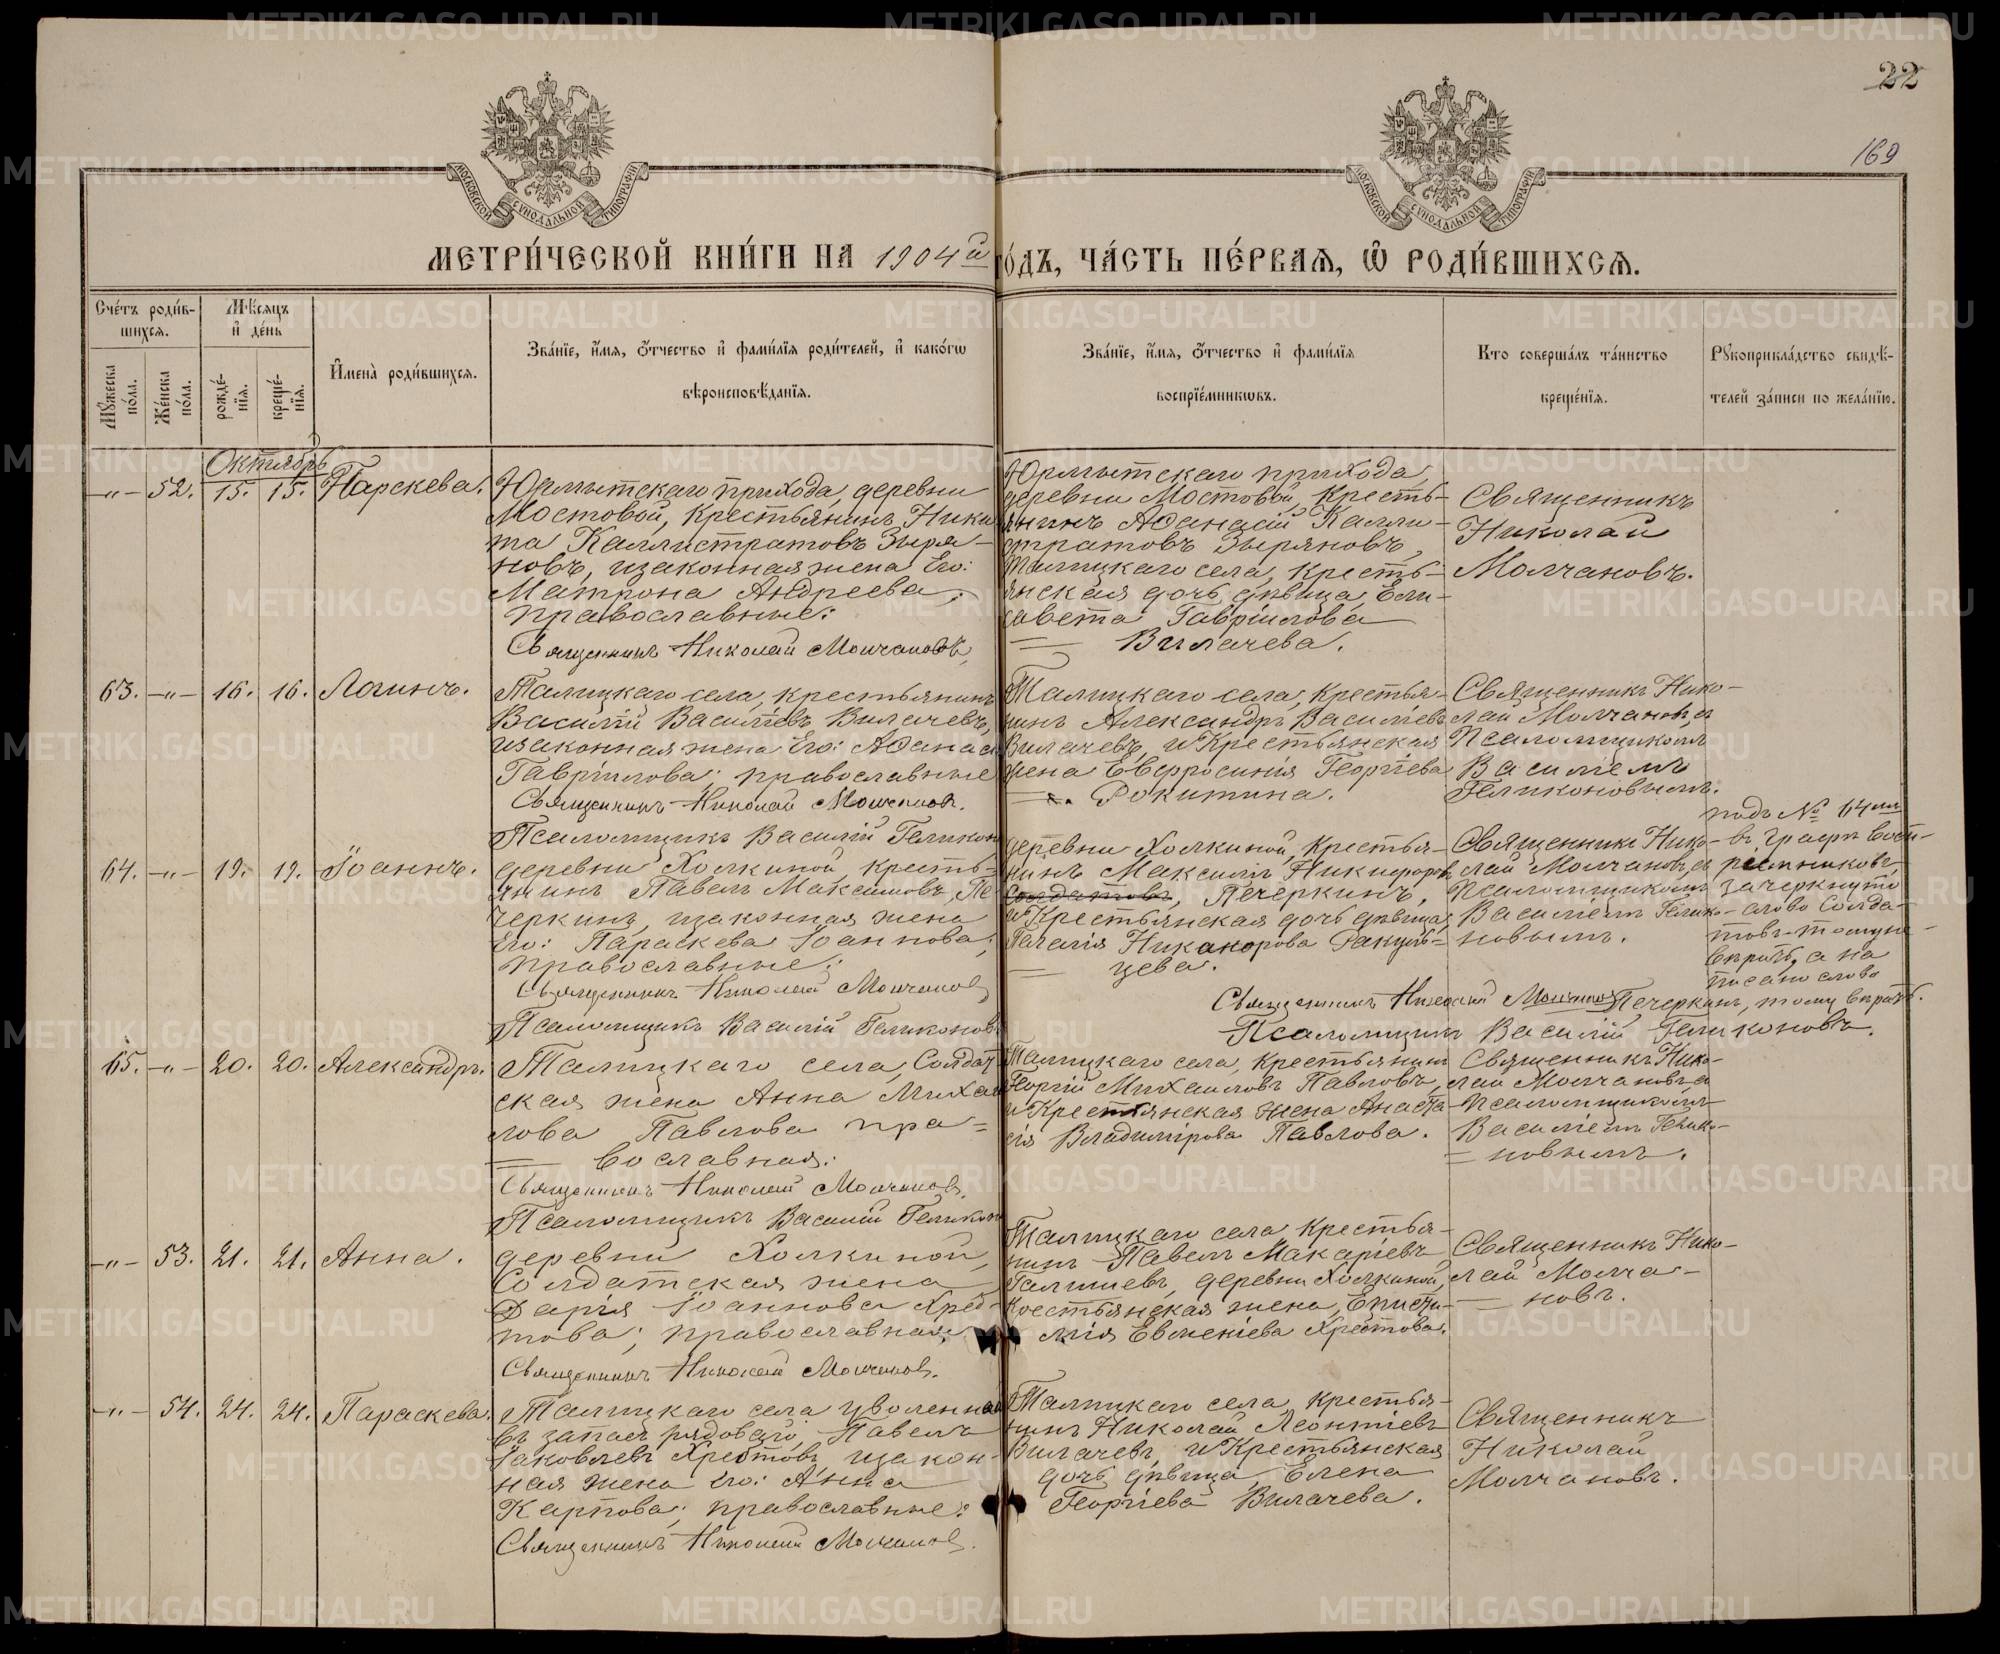 22
169
МОСКОВСКОЙ СѴНОДАЛЬНОЙ ТИПОГРАФІИ
МОСКОВСКОЙ СѴНОДАЛЬНОЙ ТИПОГРАФІИ
МЕТРИ́ЧЕСКОЙ КНИ́ГИ НА 1904й ГО́ДЪ, ЧА́СТЬ ПЕ́РВАѦ, Ѡ҆ РОДИ́ВШИХСѦ.
Сче́тъ роди́в-
шихсѧ.
Мꙋ́жеска по́ла.
Же́нска по́ла.
Мѣ́сѧцъ
и҆ де́нь
рожде́-нїѧ.
креще́-нїѧ.
И҆мена̀ роди́вшихсѧ.
Зва́нїе, и҆́мѧ, ѻ҆́тчество и҆ фами́лїѧ роди́телей, и҆ како́гѡ
вѣроисповѣ́данїѧ.
Зва́нїе, и҆́мѧ, ѻ҆́тчество и҆ фами́лїѧ
воспрїе́мникѡвъ.
Кто соверша́лъ та́инство
креще́нїѧ.
Рꙋкоприкла́дство свидѣ́-
телей за́писи по жела́нїю.
Октябрь
-„- 52. 15. 15. Парскева.
Юрмытскаго прихода, деревни
Мостовой, Крестьянинъ Ники
та Каллистратовъ Зыря-
новъ, изаконная жена Его:
Матрона Андреева;
православные:
Священникъ Николай Молчановъ,
Юрмытскаго прихода
деревни Мостовой, Кресть-
янинъ Аѳанасій Калли-
стратовъ Зыряновъ,
Талицкаго села, Кресть-
янская дочь дѣвица, Ели-
савета Гавріилова
Вилачева.
Священникъ
Николай
Молчановъ.
63. -„- 16. 16. Логинъ.
Талицкаго села, крестьянинъ
Василій Василіевъ Вилачевъ,
изаконная жена Его: Аѳанас
Гавріилова; православные
Священникъ Николай Молчановъ.
Псаломщикъ Василій Геликон
Талицкаго села, Крестья-
нинъ Александръ Василіевъ
Вилачевъ, и Крестьянская
жена Евфросинія Георгіева
Рокитина.
Священникъ Нико-
лай Молчановъ, съ
Псаломщикомъ
Василіемъ
Геликоновымъ.
64. -„- 19. 19. Іоаннъ.
деревни Холкиной, Кресть-
янинъ Павелъ Максимовъ, Пе
черкинъ, изаконная жена
Его: Параскева Іоаннова;
православные:
Священникъ Николай Молчановъ
Псаломщикъ Василій Геликоновъ
деревни Холкиной, Крестья-
нинъ Максимъ Никифоровъ
Солдатовъ, Печеркинъ,
и Крестьянская дочь дѣвица,
Пелагія Никанорова Ракуль-
цева.
Священникъ Нико-
лай Молчановъ, съ
Псаломщикомъ
Василіемъ Гелико-
новымъ.
подъ № 64мъ
въ графѣ воспи-
ріемниковъ,
зачеркнуто
слово Солда-
товъ - тому не
вѣрить, а на
писано слово
Печеркинъ, тому вѣрить.
Священникъ Николай Молчановъ
Псаломщикъ Василій Геликоновъ.
65. -„- 20. 20. Александръ.
Талицкаго села, Солдат
ская жена Анна Михаи
лова Павлова пра-
вославная:
Священникъ Николай Молчановъ.
Псаломщикъ Василій Геликон
Талицкаго села, Крестьянинъ
Георгій Михаиловъ Павловъ,
и Крестьянская жена Анаста-
сія Владимірова Павлова.
Священникъ Нико-
лай Молчановъ, съ
Псаломщикомъ
Василіемъ Гелико-
новымъ.
-„- 53. 21. 21. Анна.
деревни Холкиной,
Солдатская жена
Дарія Іоаннова Хрес-
това; православная;
Священникъ Николай Молчановъ.
Талицкаго села Крестья-
нинъ Павелъ Макаріевъ
Галишевъ, деревни Холкиной,
Крестьянская жена, Еписти-
мія Евменіева Хрестова.
Священникъ Нико-
лай Молча-
новъ.
-„- 54. 24. 24. Параскева.
Талицкаго села уволенный
въ запасъ рядовой, Павелъ
Іаковлевъ Хрестовъ, изакон-
ная жена Его: Анна
Карпова; православные:
Священникъ Николай Молчановъ.
Талицкаго села, Крестья-
нинъ Николай Леонтіевъ
Вилачевъ, и Крестьянская
дочь дѣвица, Елена
Георгіева Вилачева.
Священникъ
Николай
Молчановъ.